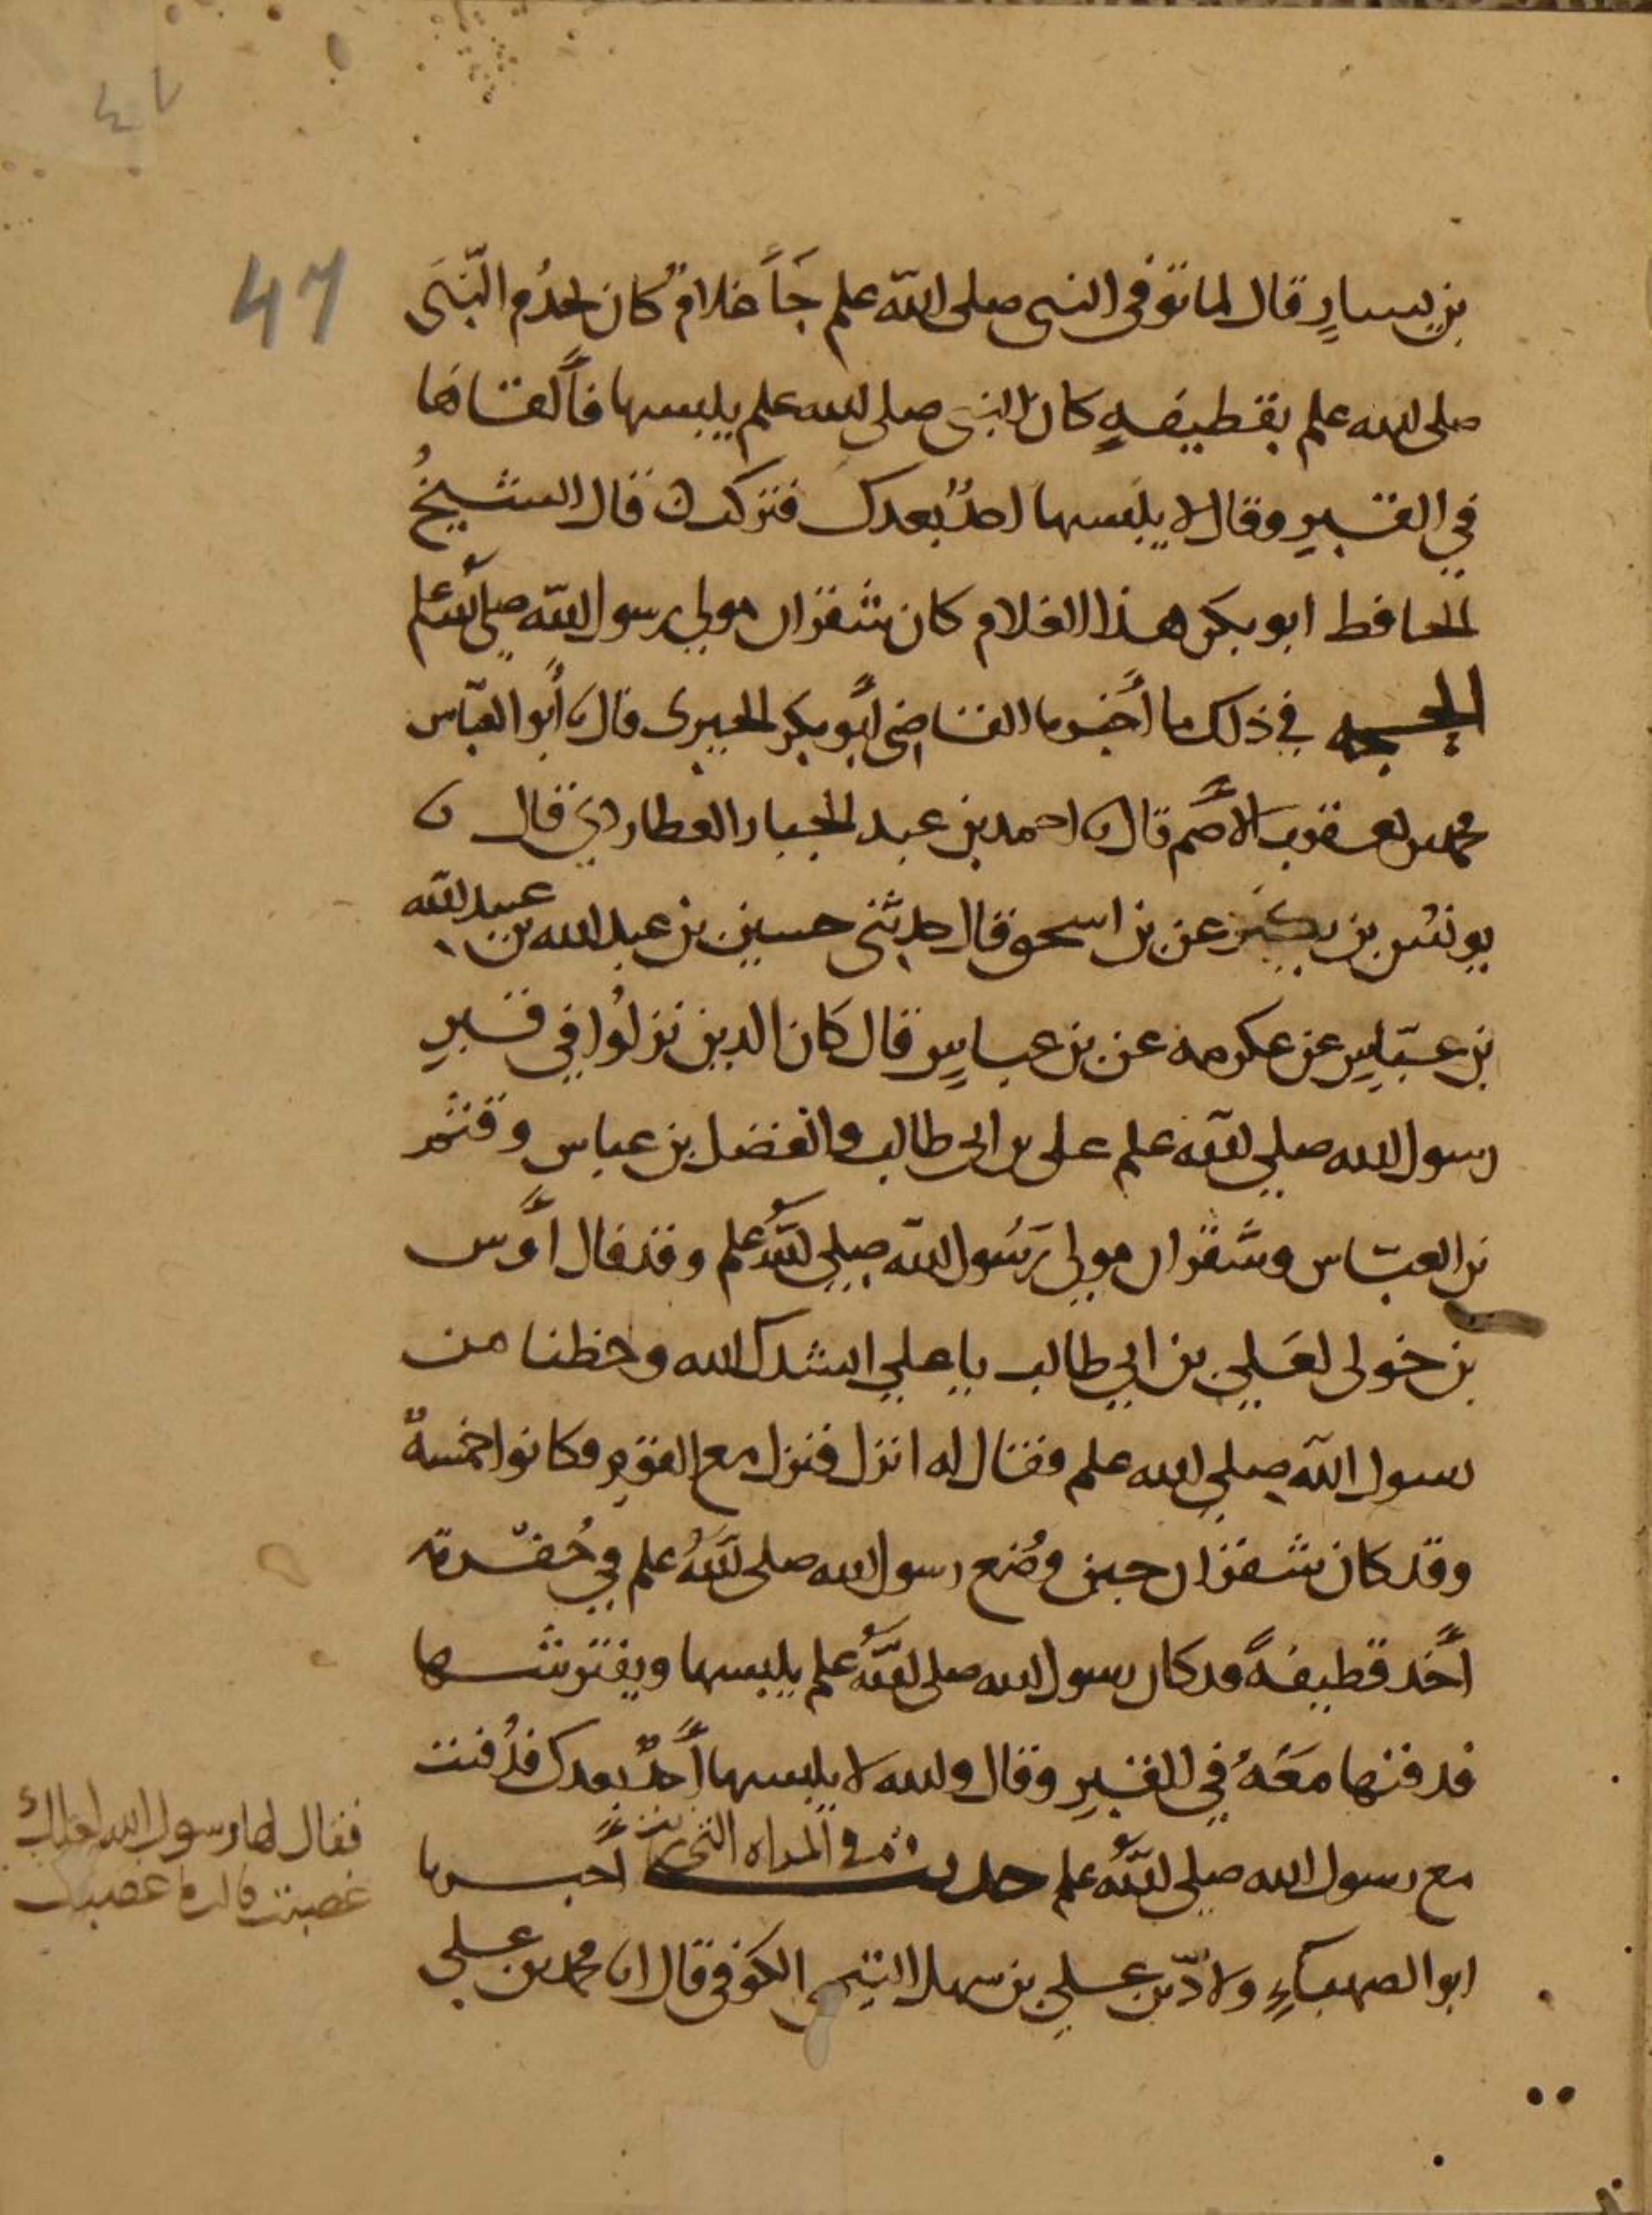 ٤٧
47
بن يسارٍ قال لما توفى النبى صلى الله علم جَاءَ غلامٌ كان يخدُم النّبىَ
صلى الله علم بقطيفهٍ كان النبى صلى الله علم يلبسها فأَلقاها
في القبرِ وقال لا يلبسها احدٌ بعدك فتركت قال الشيخُ
الحافظ ابو بكر هذا الغلام كان شقران مولى رسول الله صلى الله علم
الحجه في ذلك ما أَخبرنا القاضى أَبو بكر الحيرى قال نا أَبو العبّاس
محمد بن يعقوب الأَصَم قال نا احمد بن عبد الجبار العطاردي قال نا
يونس بن بكير عن بن اسحق قال حدثنى حسين بن عبد الله بن عبيد الله
بن عبّاسٍ عن عكرمه عن بن عباسٍ قال كان الذين نزلُوا في قبرِ
رسول الله صلى الله علم على بن ابى طالب والفضل بن عباس وقثم
بن العبّاس وشقران مولى رَسُول الله صلى اللهُ علم وقد قال أَوس
بن خولى لعَلي بن ابي طالب يا علي انشدك الله وحظنا من
رسول الله صلى الله علم فقال له انزل فنزل مع القوم وكانوا خمسهً
وقد كان شقران حين وُضع رسول الله صلى اللهُ علم في حُفرته
أَخذ قطيفهً قد كان رسول الله صلى اللهُ علم يلبسها ويفترشها
فدفنها معَهُ في القبرِ وقال والله لا يلبسها أَحدٌ بعدك فدُفنت
مع رسول الله صلى اللهُ علم حديث في المراه التى أَخبرنا
ابو الصهباءِ ولادّ بن علي بن سهل التيمى الكوفى قال انا محمد بن علي
فقال لها رسول الله لعلك
غضبت